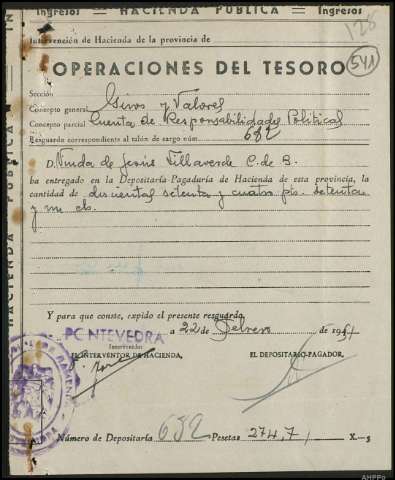 Ingresos HACIENDA PÚBLICA Ingresos
128
Intervención de Hacienda de la provincia de
OPERACIONES DEL TESORO
541
Sección
Concepto general Giros y Valores
Concepto parcial Cuenta de Responsabilidades Políticas
Resguardo correspondiente al talón de cargo núm. 682
D. Viuda de Jesús Villaverde C. de B.
ha entregado en la Depositaría-Pagaduría de Hacienda de esta provincia, la
cantidad de doscientas setenta y cuatro pts. setenta
y un cts.
Y para que conste, expido el presente resguardo.
PONTEVEDRA
a 22 de Febrero de 19
Intervención
EL INTERVENTOR DE HACIENDA,
EL DEPOSITARIO-PAGADOR,
Número de Depositaría 682 Pesetas 274,71
HACIENDA PÚBLICA
IN
AHPPo